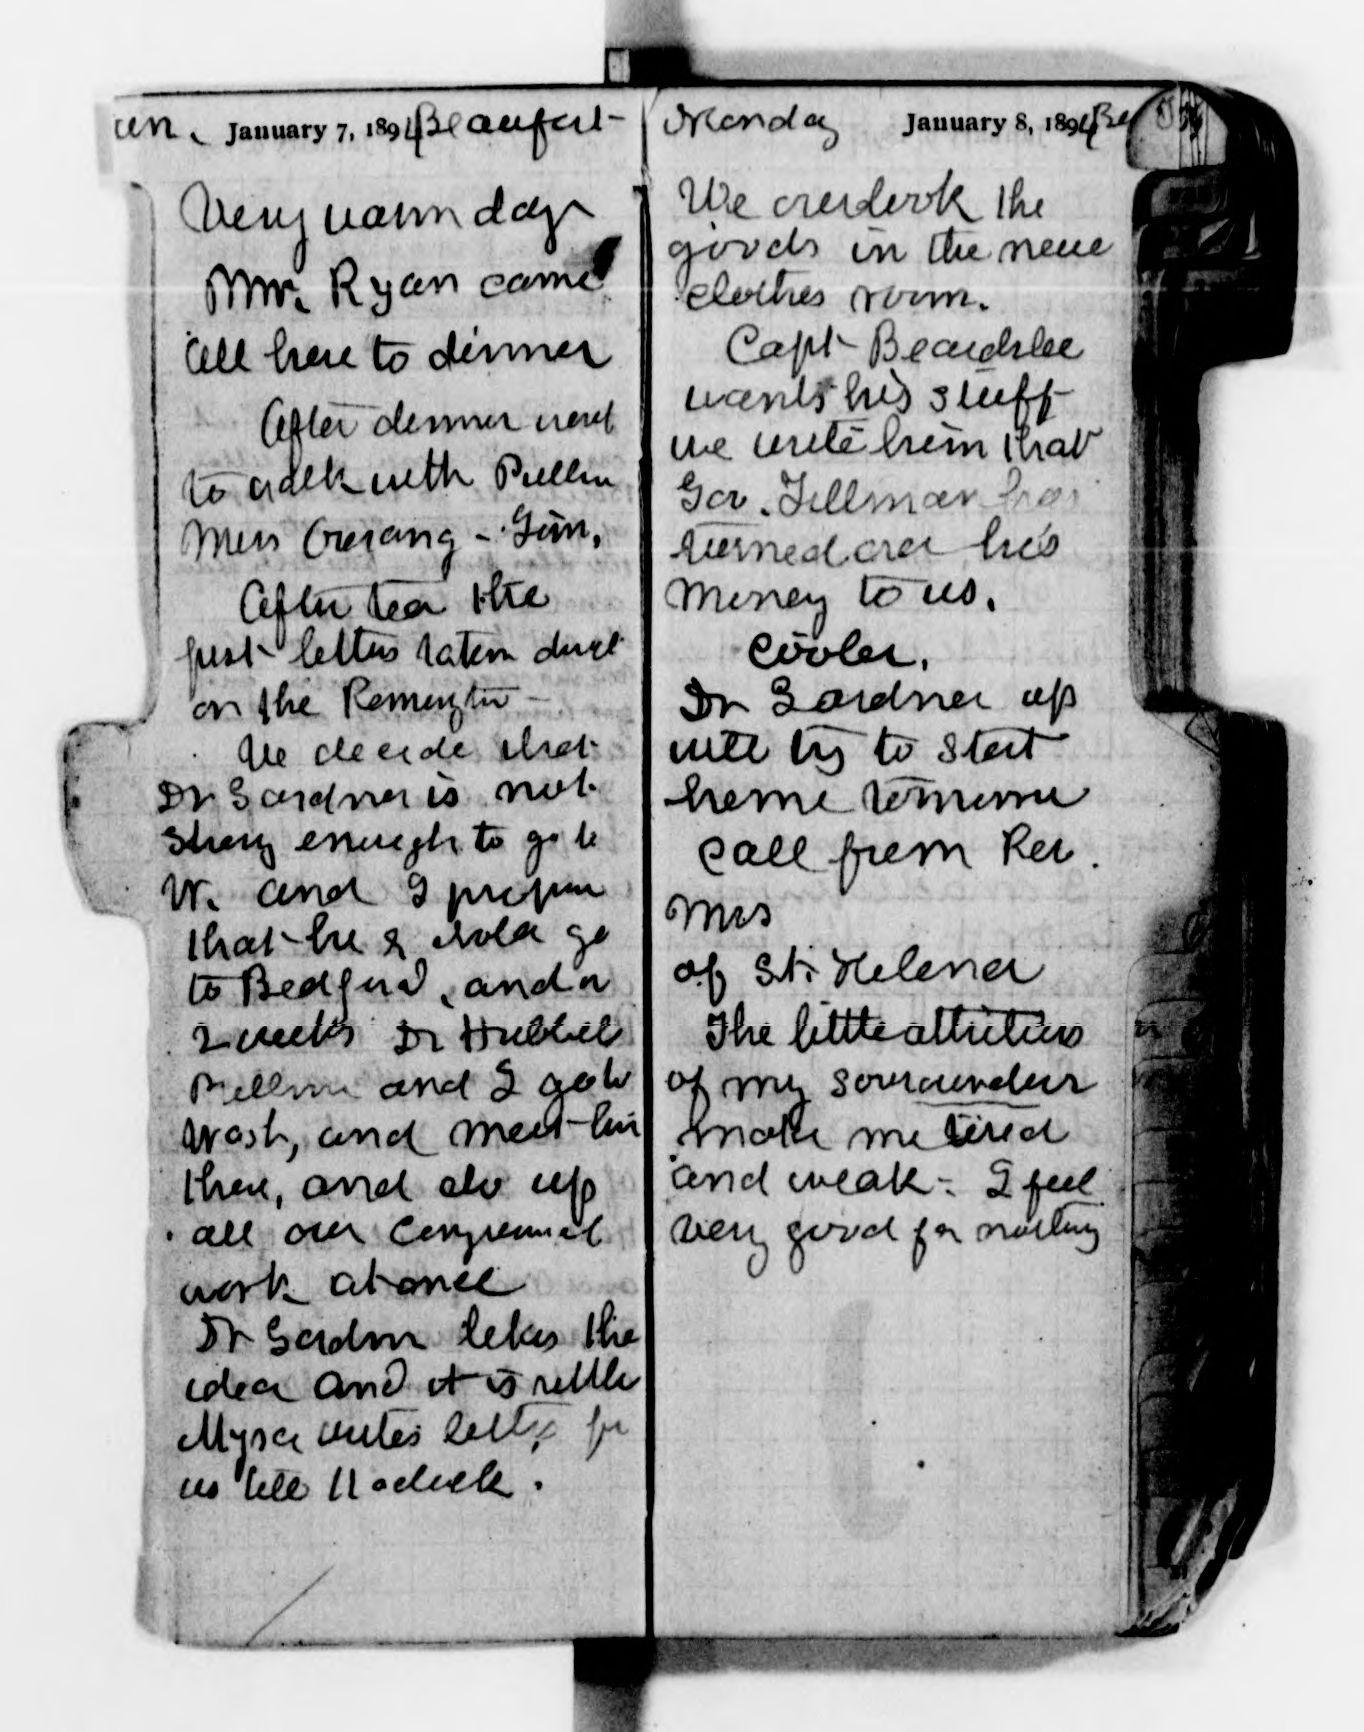 Sun. January 7, 1894 Beaufort
Very warm day
Mr. Ryan came
all here to dinner
After dinner went
to walk with Pullm
Miss
After tea the
first letters taken direct
on the Remington -
We decide that
Dr Gardner is not
strong enough to go to
W. and I propose
that he & wold go
to Bedford, and in
2 weeks Dr Hubbell
Pullman and I go to
Wash, and meet him
there, and do up
all our Congressional
work at once
Dr Gardner likes the
idea and it is settle
Mysa writes letters for
us till 11 oclock.
Monday January 8, 1894 Be
We overlook the
goods in the new
clothes room.
Capt Beardslee
wants his stuff
we write him that
Gov. Tillman has
turned over his
money to us.
Cooler.
Dr Gardner up
will try to start
home tomorrow
Call from Rev.
Mrs
of St. Helena
The little
of my
make me tired
and weak - I feel
very good for nothing